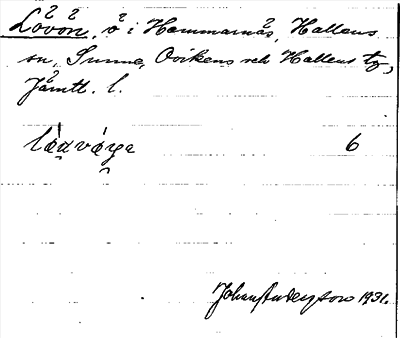 Lövön, ö i Hammarnäs, Hallens
sn, Sunne, Ovikens och Hallens tg,
Jämtl. l.
6
Johan Anderson 1931.